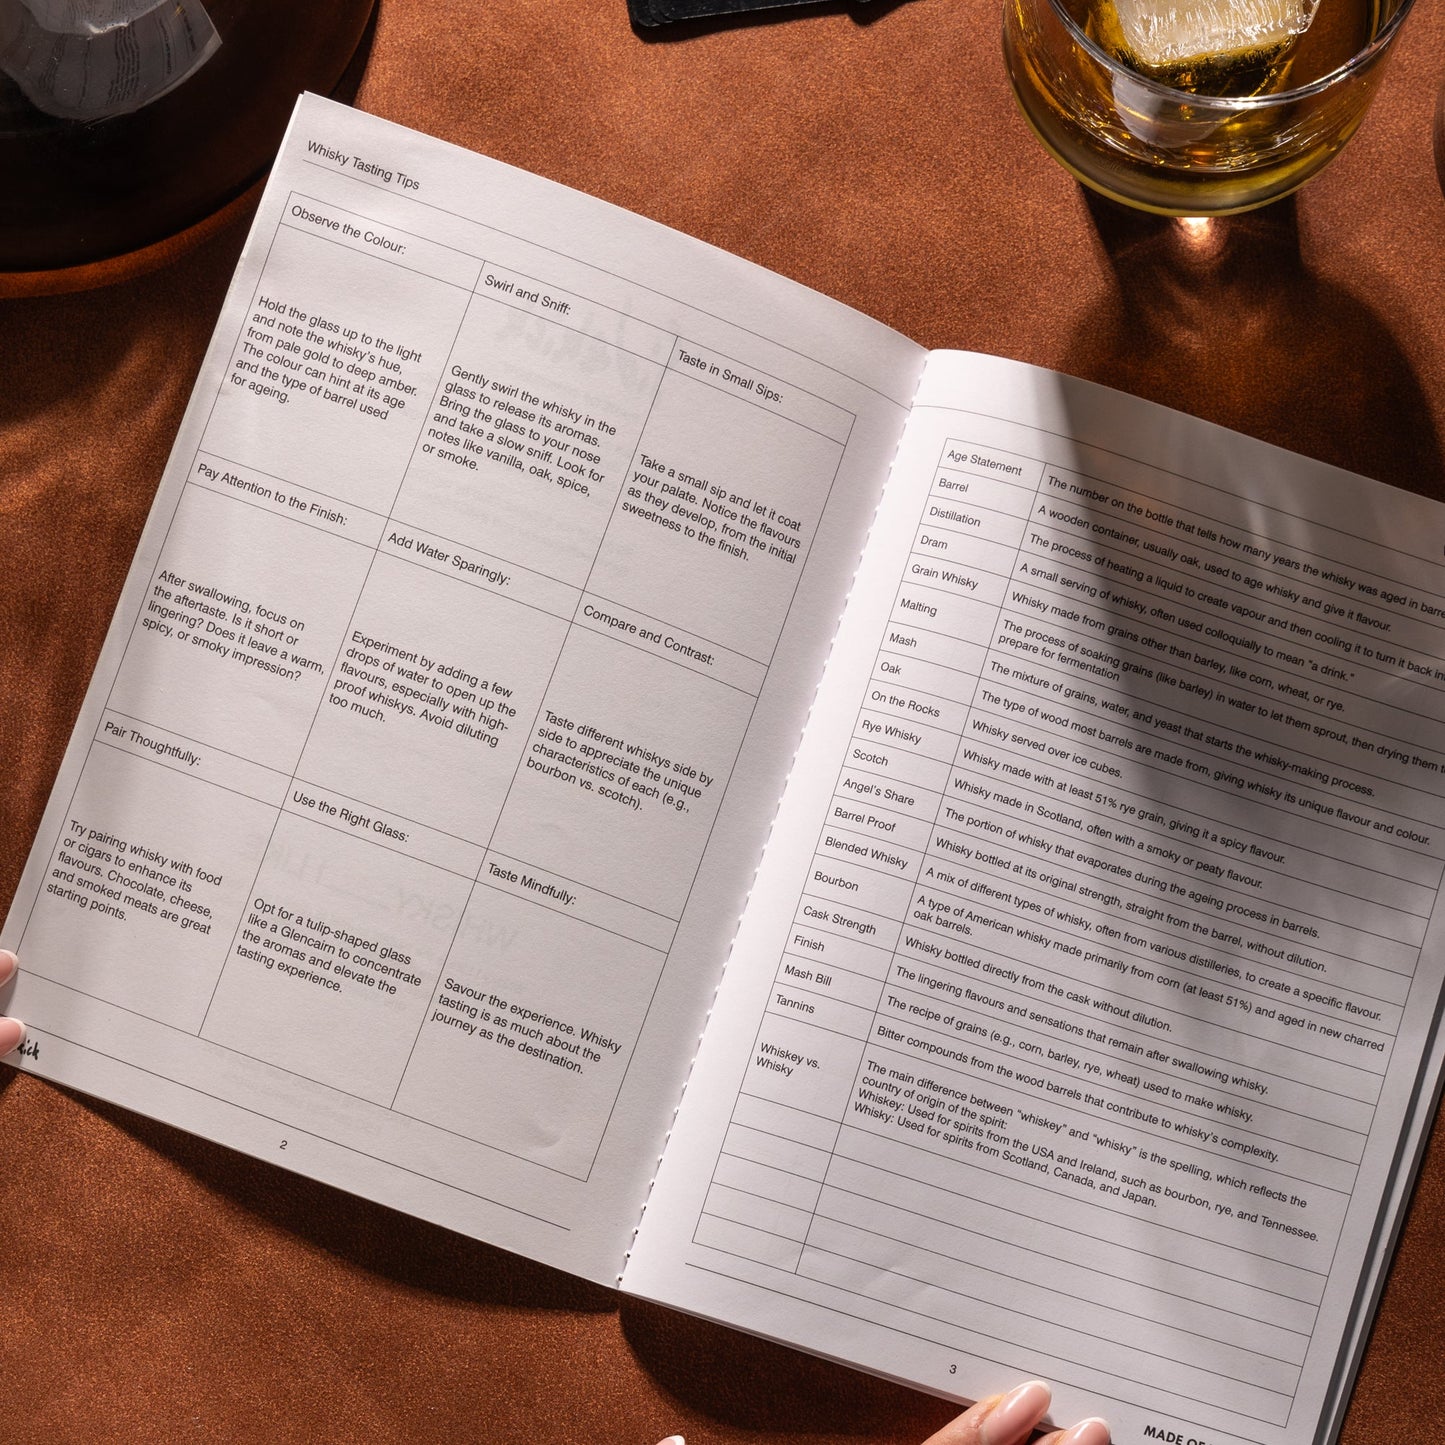 Whisky Tasting Tips
Observe the Colour:
Hold the glass up to the light
and note the whisky's hue,
from pale gold to deep amber.
The colour can hint at its age
and the type of barrel used
for ageing.
Swirl and Sniff:
Gently swirl the whisky in the
glass to release its aromas.
Bring the glass to your nose
and take a slow sniff. Look for
notes like vanilla, oak, spice,
or smoke.
Taste in Small Sips:
Take a small sip and let it coat
your palate. Notice the flavours
as they develop, from the initial
sweetness to the finish.
Pay Attention to the Finish:
After swallowing, focus on
the aftertaste. Is it short or
lingering? Does it leave a warm,
spicy, or smoky impression?
Add Water Sparingly:
Experiment by adding a few
drops of water to open up the
flavours, especially with high-
proof whiskys. Avoid diluting
too much.
Compare and Contrast:
Taste different whiskys side by
side to appreciate the unique
characteristics of each (e.g.,
bourbon vs. scotch).
Pair Thoughtfully:
Try pairing whisky with food
or cigars to enhance its
flavours. Chocolate, cheese,
and smoked meats are great
starting points.
Use the Right Glass:
Opt for a tulip-shaped glass
like a Glencairn to concentrate
the aromas and elevate the
tasting experience.
Taste Mindfully:
Savour the experience. Whisky
tasting is as much about the
journey as the destination.
2
Age Statement
The number on the bottle that tells how many years the whisky was aged in
Barrel
A wooden container, usually oak, used to age whisky and give it flavour.
Distillation
The process of heating a liquid to create vapour and then cooling it to turn it back
Dram
A small serving of whisky, often used colloquially to mean "a drink."
Grain Whisky
Whisky made from grains other than barley, like corn, wheat, or rye.
Malting
The process of soaking grains (like barley) in water to let them sprout, then drying them
prepare for fermentation
Mash
The mixture of grains, water, and yeast that starts the whisky-making process.
Oak
The type of wood most barrels are made from, giving whisky its unique flavour and colour.
On the Rocks
Whisky served over ice cubes.
Rye Whisky
Whisky made with at least 51% rye grain, giving it a spicy flavour.
Scotch
Whisky made in Scotland, often with a smoky or peaty flavour.
Angel's Share
The portion of whisky that evaporates during the ageing process in barrels.
Barrel Proof
Whisky bottled at its original strength, straight from the barrel, without dilution.
Blended Whisky
A mix of different types of whisky, often from various distilleries, to create a specific flavour.
Bourbon
A type of American whisky made primarily from corn (at least 51%) and aged in new charred
oak barrels.
Cask Strength
Whisky bottled directly from the cask without dilution.
Finish
The lingering flavours and sensations that remain after swallowing whisky.
Mash Bill
The recipe of grains (e.g., corn, barley, rye, wheat) used to make whisky.
Tannins
Bitter compounds from the wood barrels that contribute to whisky's complexity.
Whiskey vs.
Whisky
The main difference between "whiskey" and "whisky" is the spelling, which reflects the
country of origin of the spirit:
Whiskey: Used for spirits from the USA and Ireland, such as bourbon, rye, and Tennessee.
Whisky: Used for spirits from Scotland, Canada, and Japan.
3
MADE OF